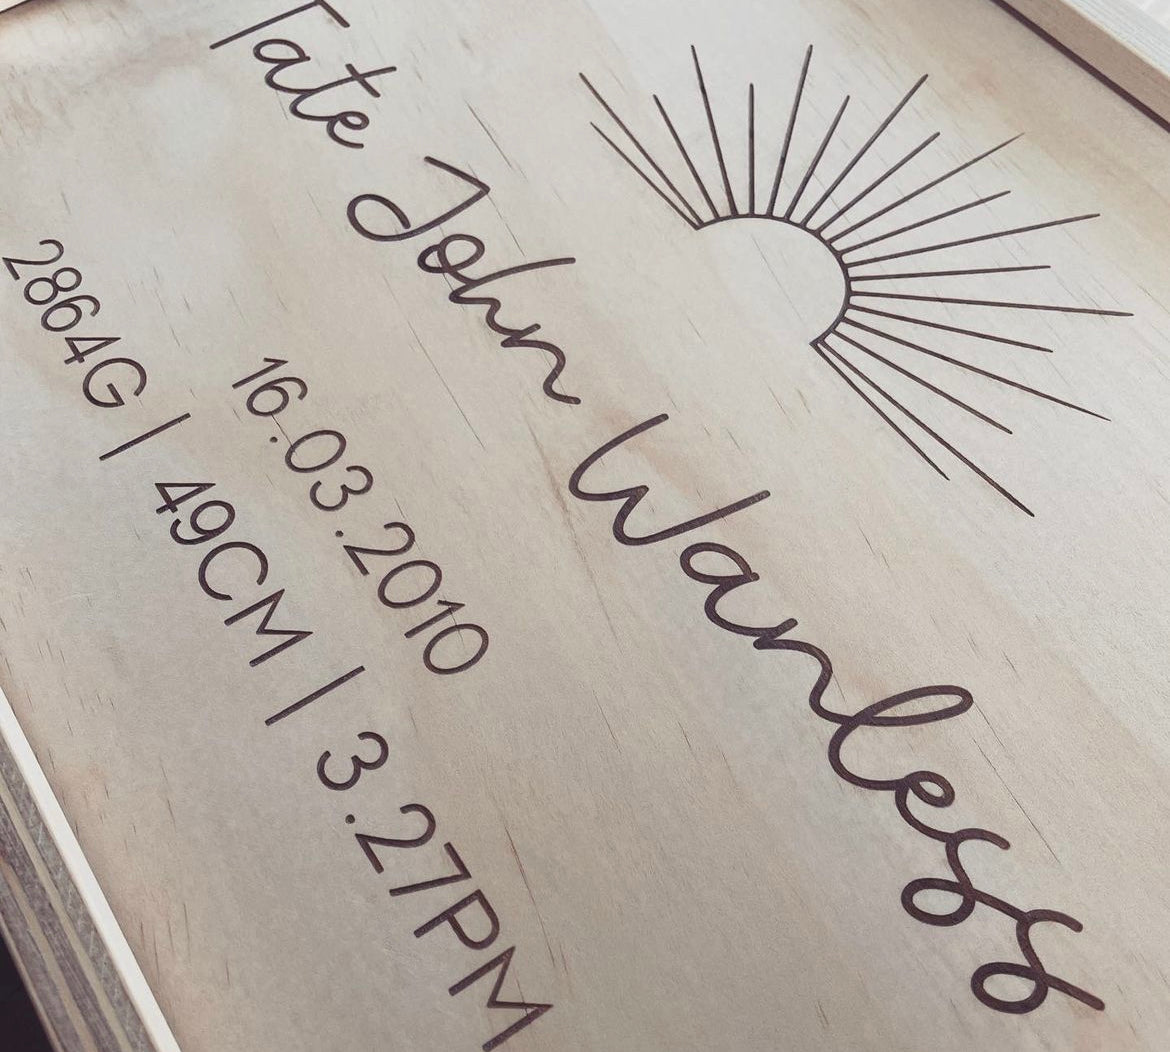 Tate John Wanless
16.03.2010
2864G | 49CM | 3.27PM